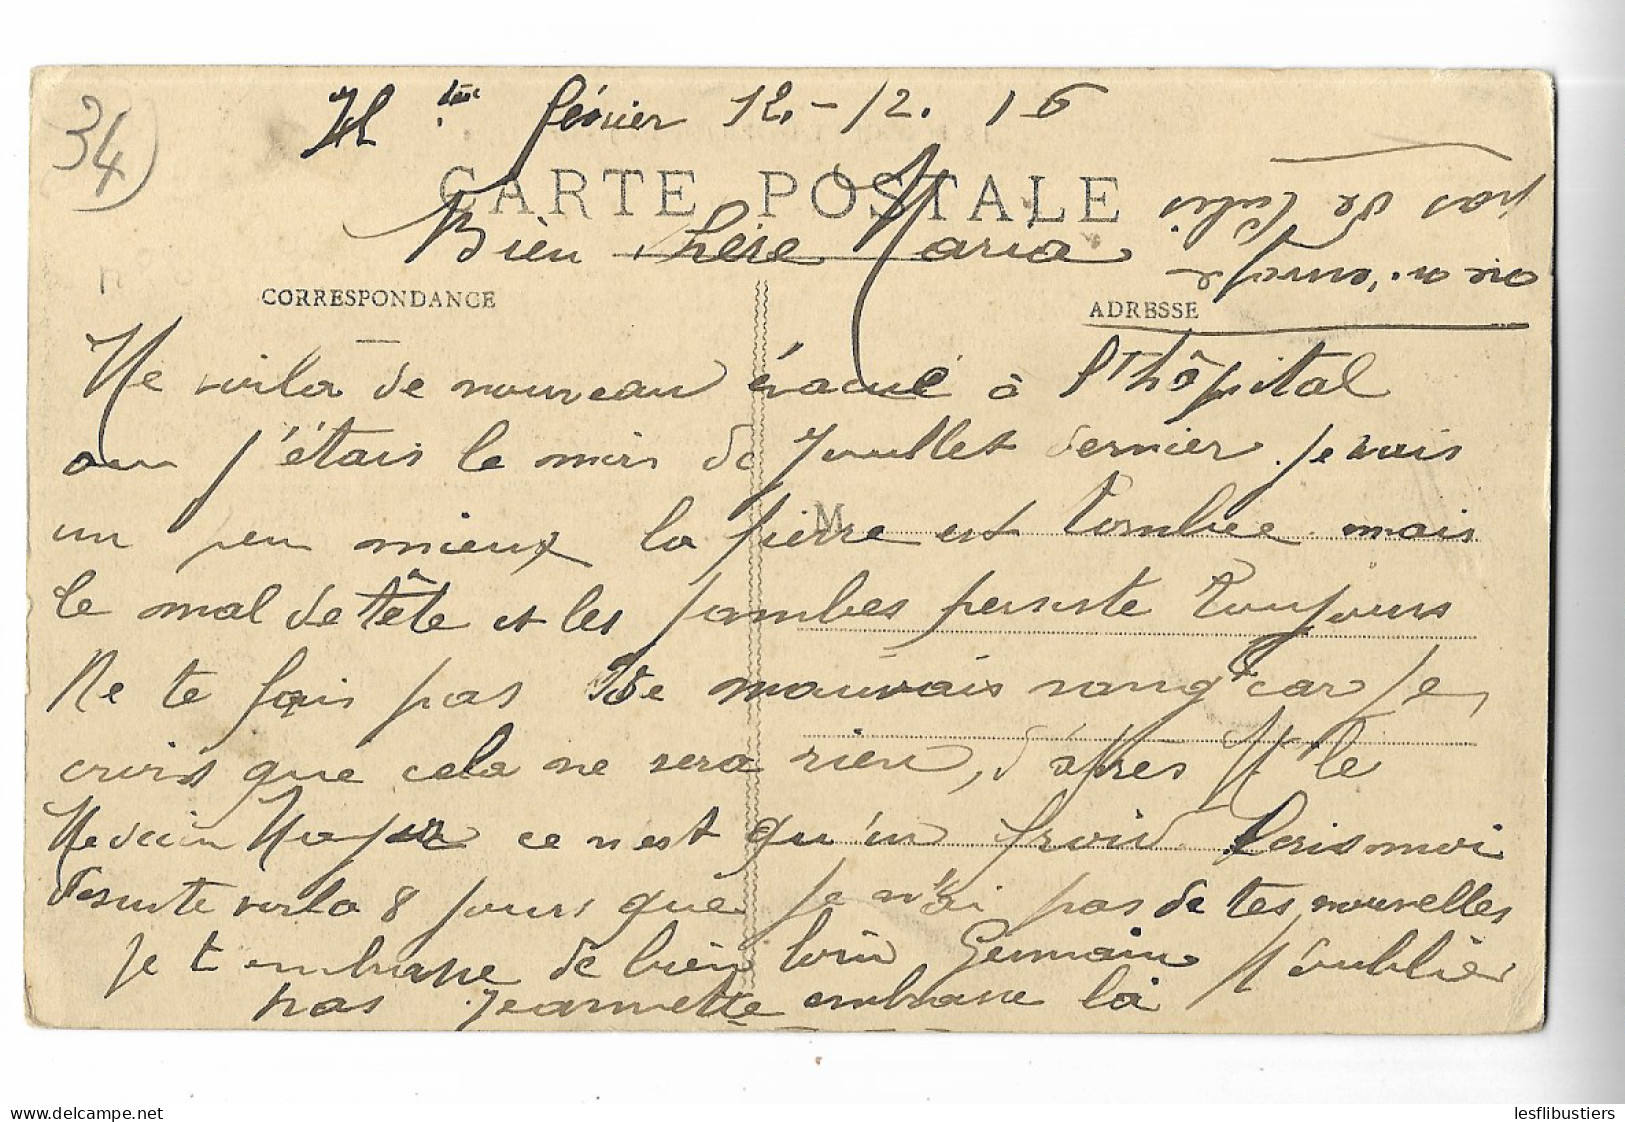 34)
février 12.-12. 16
CARTE POSTALE
Bien chère Maria
pas de Colis
on n'envoye
CORRESPONDANCE
ADRESSE
Me voila de nouveau évacué à l'hôpital
ou j'étais le mois de Jouillet dernier. je vais
un peu mieux la fièvre est tombée mais
M
le mal de tête et les jambes persiste toujours
Ne te fais pas de mauvais sang car je
crois que cela ne sera rien, d'après M. le
Medecin Major ce n'est qu'un froid. Écris moi
desuite voila 8 jours que je n'ai pas de tes nouvelles
je t embrasse de bien loin Germain N'oublie
pas Jeannette embrasse la
lesflibustiers
© delcampe.net